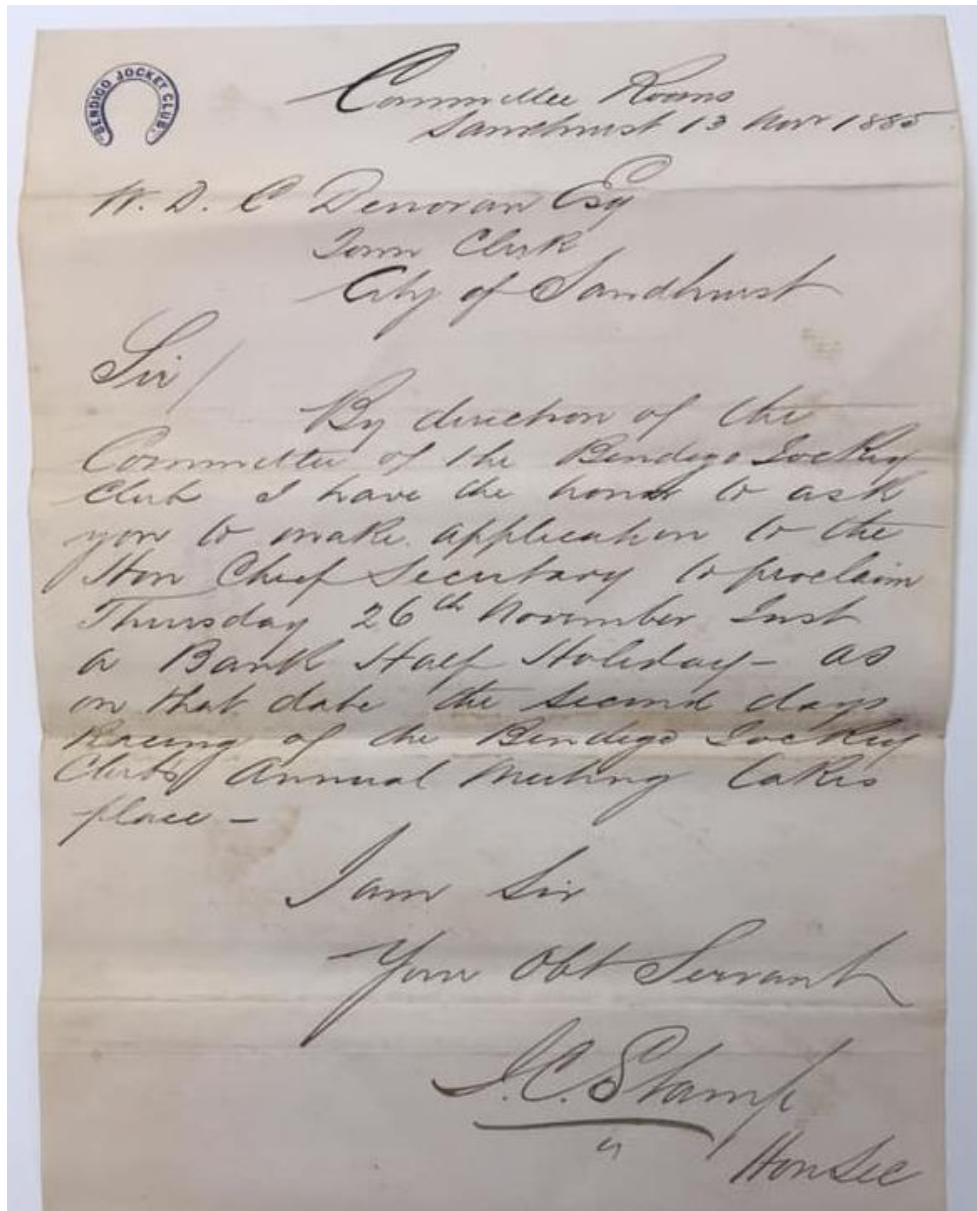 BENDIGO JOCKEY CLUB.
Committee Rooms
Sandhurst 13 Novr 1885
W. D. C Denovan Esq
Town Clerk
City of Sandhurst
Sir/
By direction of the
Committee of the Bendigo Jockey
Club I have the honor to ask
you to make application to the
Hon Chief Secretary to proclaim
Thursday 26th November Inst
a Bank Half Holiday - as
on that date the second days
Racing of the Bendigo Jockey
Club's Annual Meeting takes
place -
I am Sir
Your Obt Servant
J.C. Stamp
Hon Sec